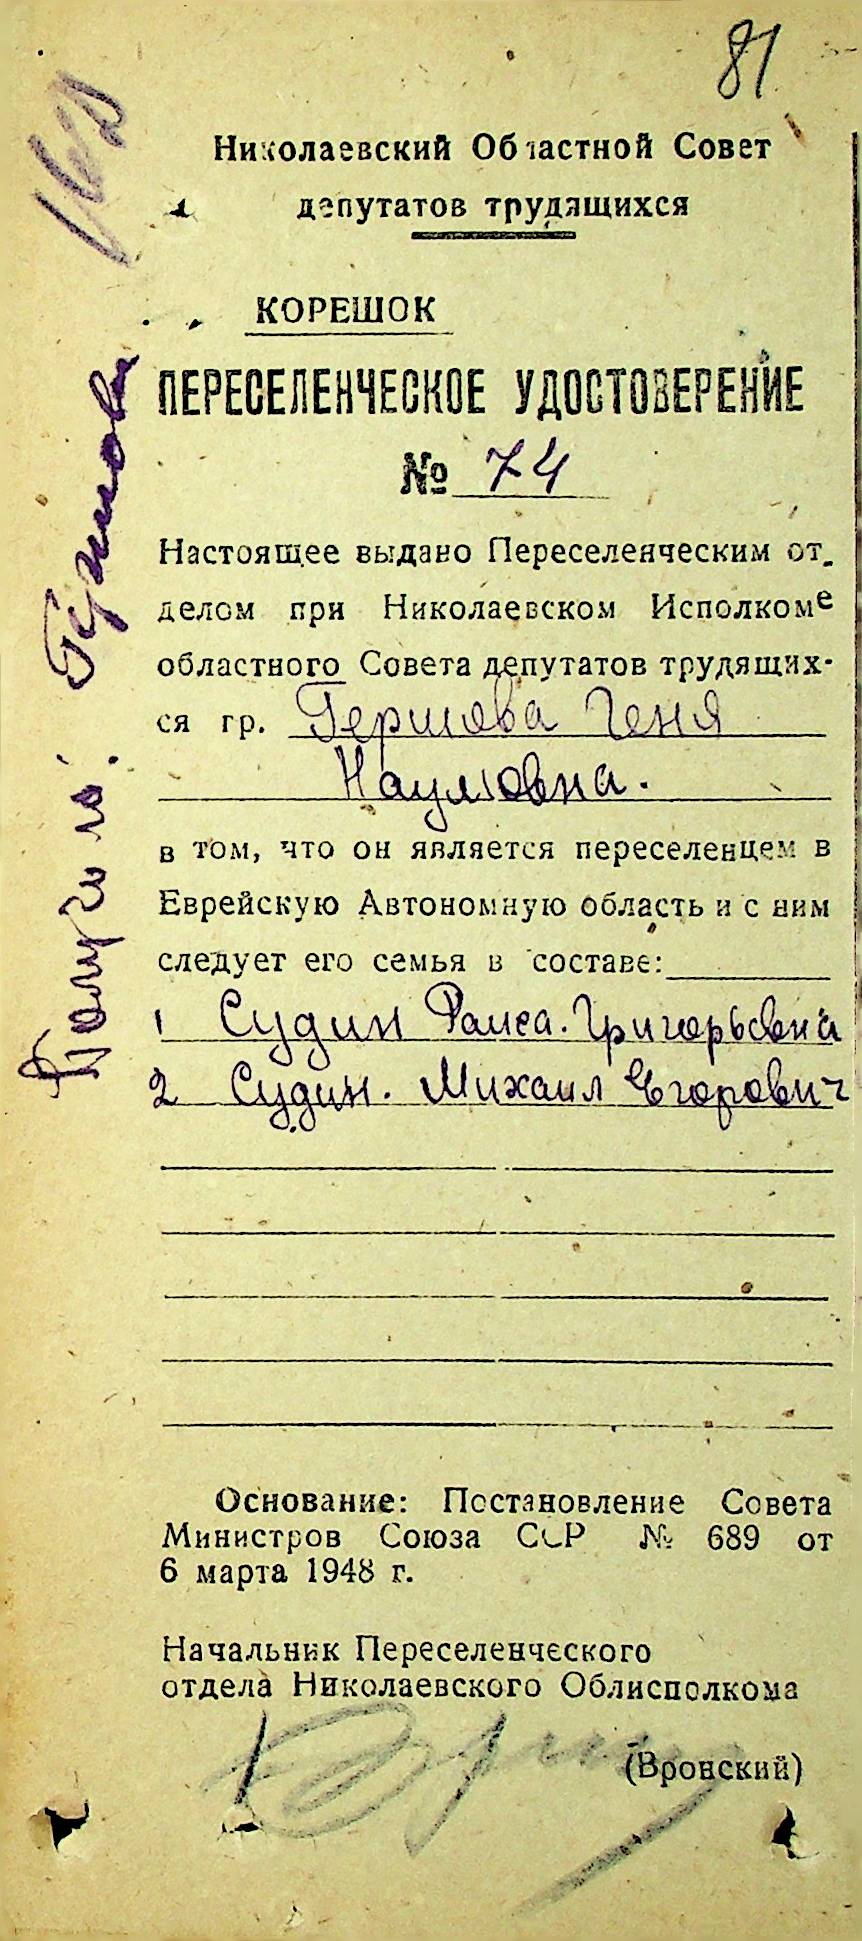 81
Николаевский Областной Совет
депутатов трудящихся
КОРЕШОК
ПЕРЕСЕЛЕНЧЕСКОЕ УДОСТОВЕРЕНИЕ
№ 74
Настоящее выдано Переселенческим от-
делом при Николаевском Исполкоме
областного Совета депутатов трудящих-
ся гр. Гершова Геня
Наумовна.
в том, что он является переселенцем в
Еврейскую Автономную область и с ним
следует его семья в составе:
1 Судин Раиса. Григорьевна
2 Судин. Михаил Егорович
Основание: Постановление Совета
Министров Союза ССР № 689 от
6 марта 1948 г.
Начальник Переселенческого
отдела Николаевского Облисполкома
(Вронский)
Получила: